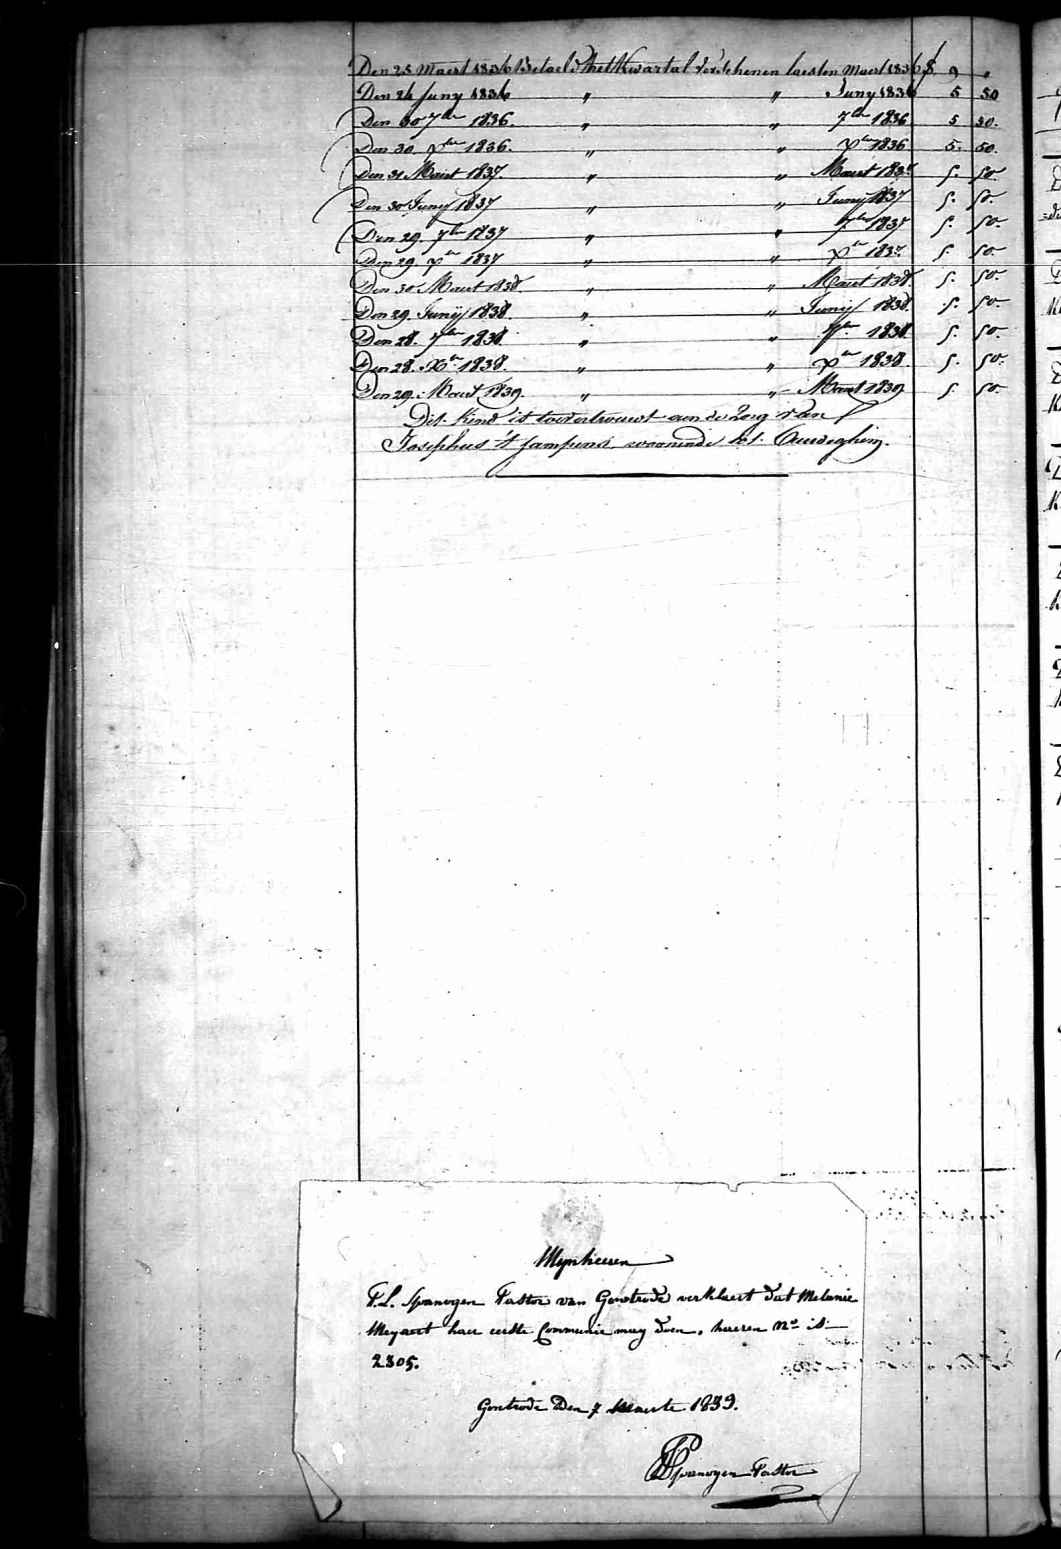 Den 25 Maert 1836 Betaeld het Kwartal verschenen laesten Maert 1836 f 9 "
Den 24 Juny 1836 " " Juny 1836 5 50
Den 30 7ber 1836. " " 7ber 1836 5 50.
Den 30. xber 1836. " " xber 1836 5. 50.
Den 31 Maert 1837 " " Maert 1837 5. 50.
Den 30 Juny 1837 " " Juny 1837 5. 50.
Den 29. 7ber 1837 " " 7ber 1837 5. 50.
Den 29. xber 1837 " " xber 1837. 5. 50.
Den 30 Maert 1838. " " Maert 1838. 5. 50.
Den 29. Junij 1838. " " Junij 1838. 5. 50.
Den 28. 7ber 1838. " " 7ber 1838 5. 50.
Den 28. Xber 1838. " " xber 1838 5. 50.
Den 29. Maert 1839. " " Maert 1839 5. 50.
Dit kind is toevertrouwt aen de Zorg van
Josephus 't Jampens woonende tot Auweghem.
Mynheeren
P.L. Spanogen Pastor van Gontrode verklaert dat Melanie
Meyaert haer eerste Communie mag doen, haeren No is
2305.
Gontrode Den 7 Maerte 1839.
PLSpanogen Pastor